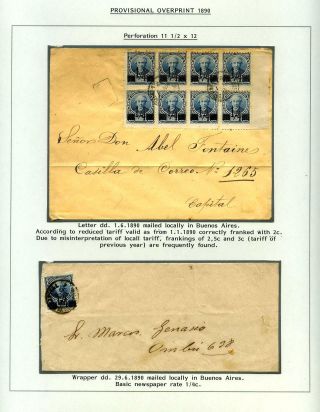 PROVISIONAL OVERPRINT 1890
Perforation 11 1/2 x 12
Señor Don Abel Fontaine
Casilla de Correo Nº 1265
Capital
Letter dd. 1.6.1890 mailed locally in Buenos Aires.
According to reduced tariff valid as from 1.1.1890 correctly franked with 2c.
Due to misinterpretation of locall tariff, frankings of 2,5c and 3c (tariff of
previous year) are frequently found.
Sr. Marcos
Ombú 638
Wrapper dd. 29.6.1890 mailed locally in Buenos Aires.
Basic newspaper rate 1/4c.